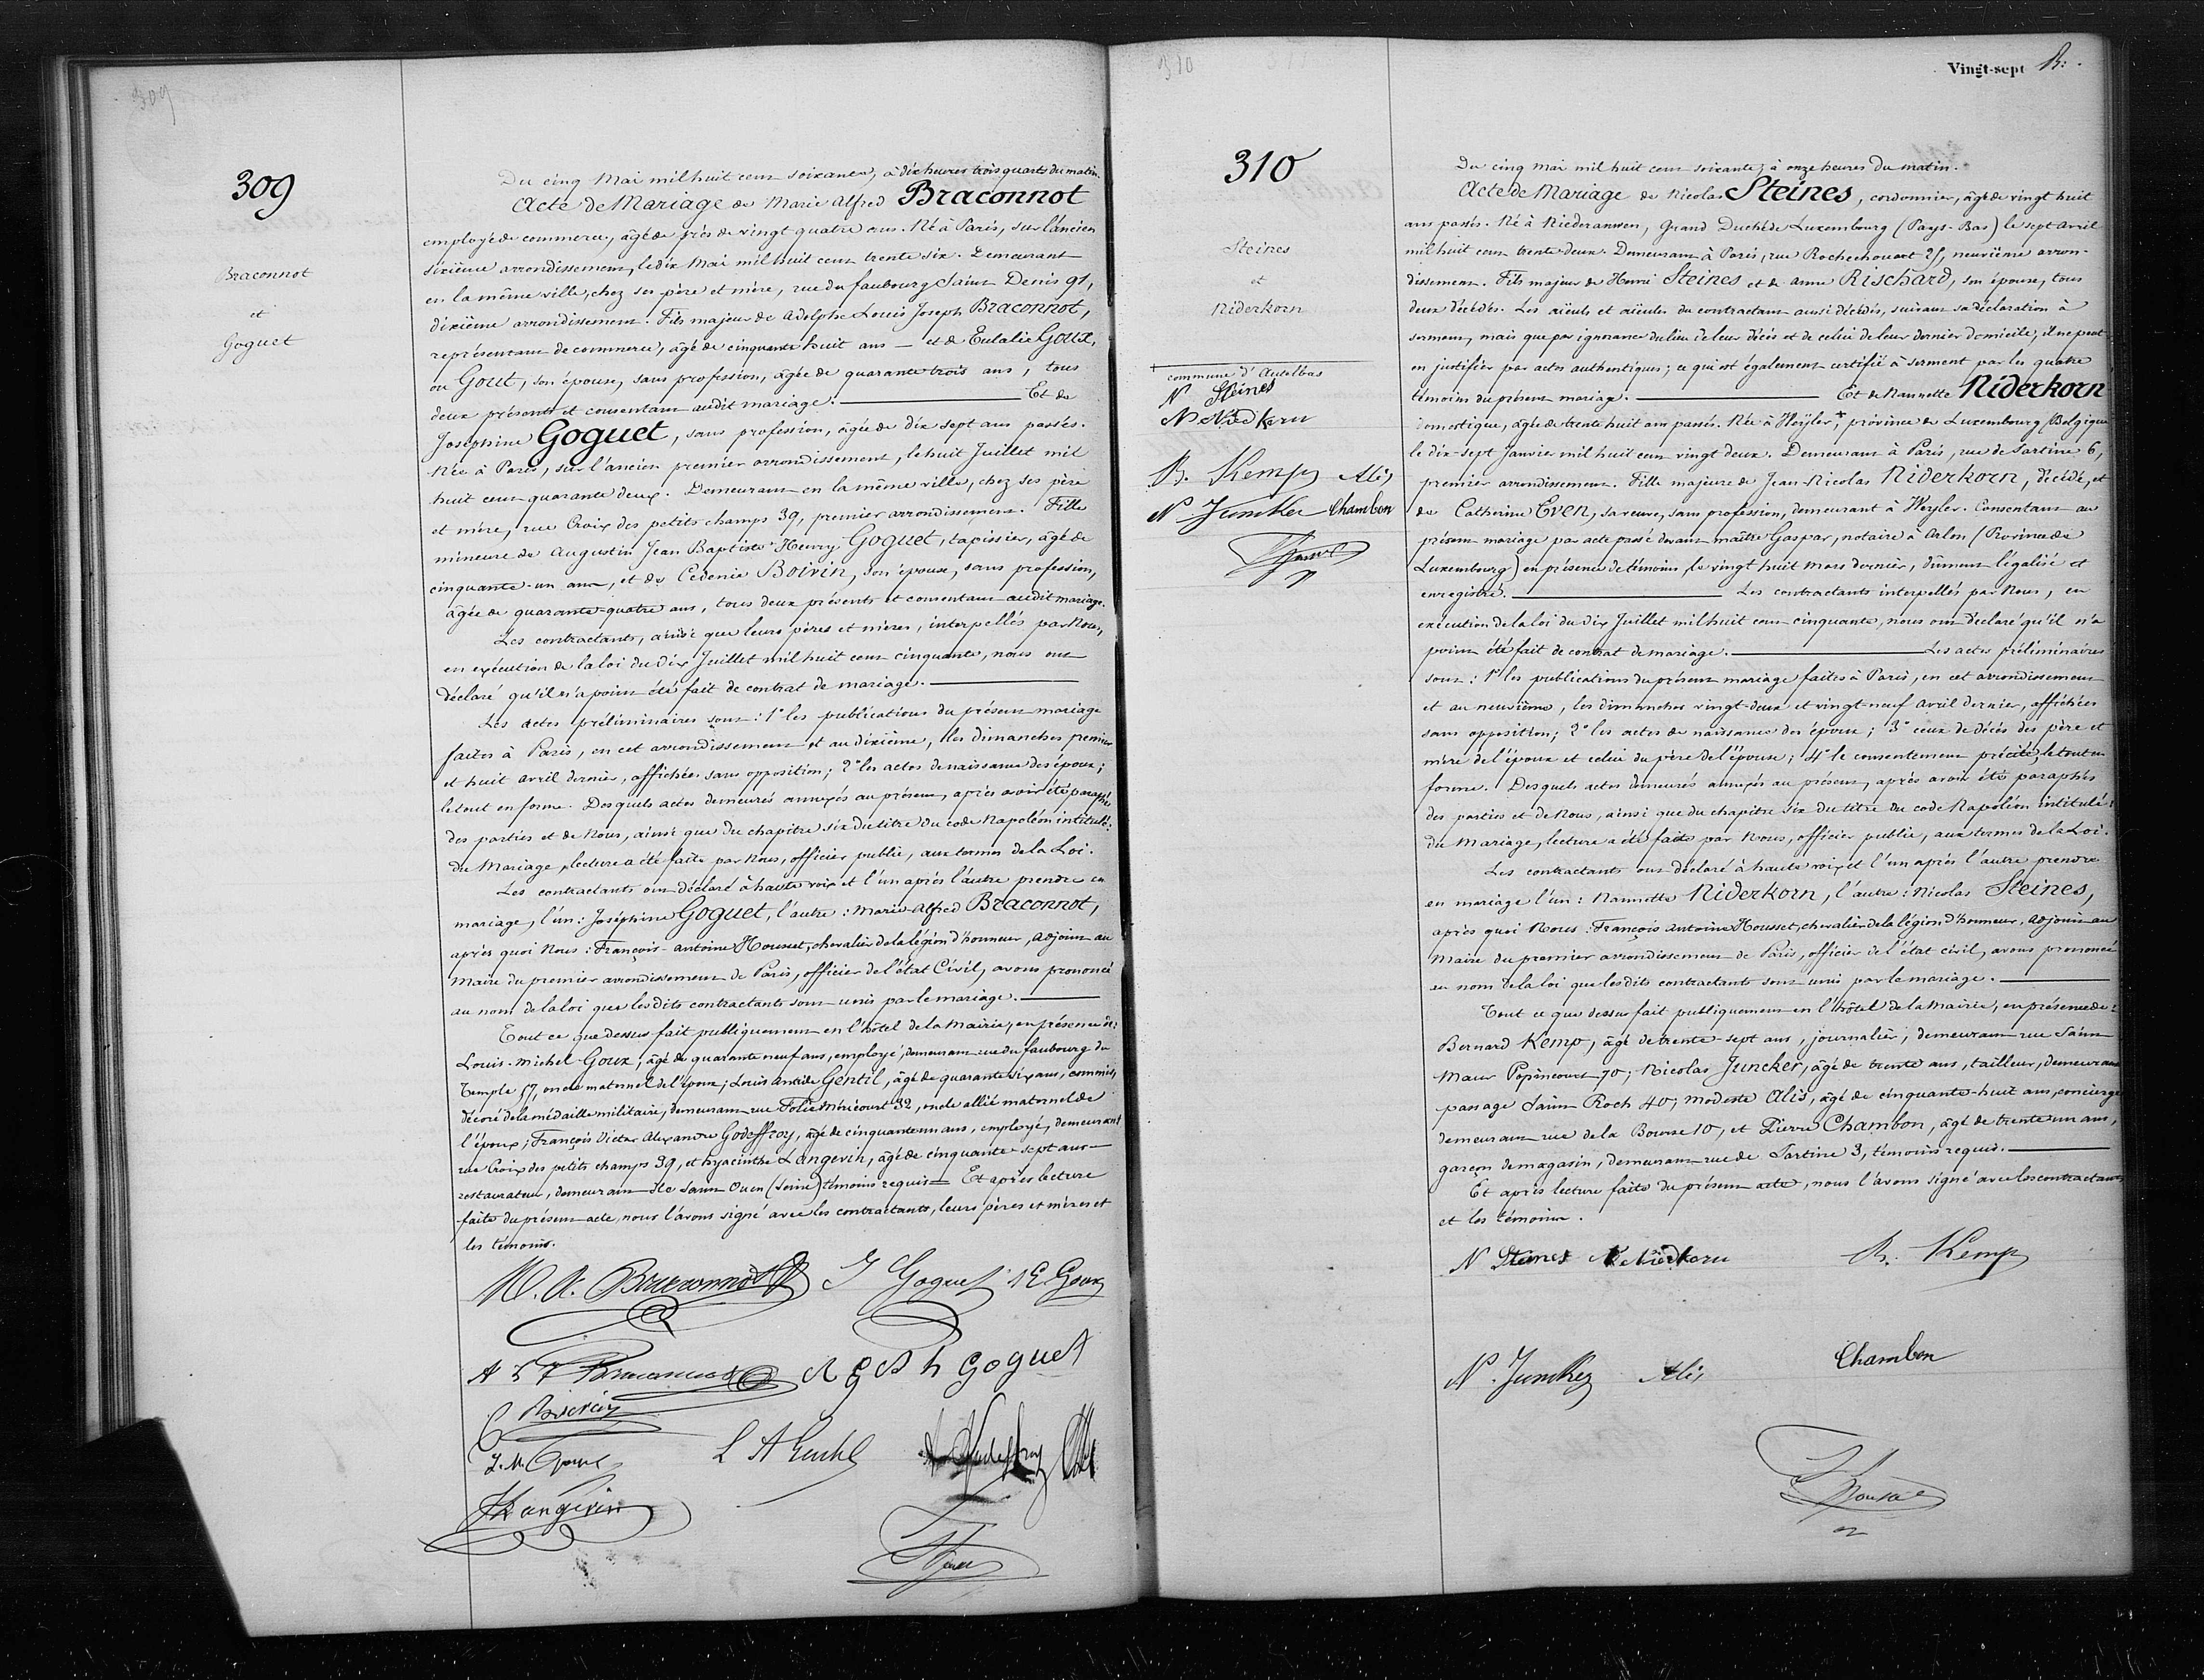 309
309
Braconnot
et
Goguet
Du cinq Mai mil huit cent soixante, à dix heures trois quarts du matin.
Acte de Mariage de Marie Alfred Braconnot
employé de commerce, âgé de près de vingt quatre ans. Né à Paris, sur l'ancien
sixième arrondissement, le dix Mai mil huit cent trente six. Demeurant
en la même ville, chez ses père et mère, rue du faubourg Saint Denis 91,
dixième arrondissement. Fils majeur de Adolphe Louis Joseph Braconnot,
représentant de commerce, âgé de cinquante huit ans — et de Eulalie Goux,
ou Gout, son épouse, sans profession, âgée de quarante trois ans, tous
deux présents et consentant audit mariage. — Et de
Joséphine Goguet, sans profession, âgée de dix sept ans passés.
Née à Paris, sur l'ancien premier arrondissement, le huit Juillet mil
huit cent quarante deux. Demeurant en la même ville, chez ses père
et mère, rue Croix des petits champs 39, premier arrondissement. Fille
mineure de Augustin Jean Baptiste Henry Goguet, tapissier, âgé de
cinquante-un ans, et de Cedenie Boivin, son épouse, sans profession,
âgée de quarante-quatre ans, tous deux présents et consentant audit mariage.
Les contractants, ainsi que leurs pères et mères, interpellés par Nous,
en exécution de la loi du dix Juillet mil huit cent cinquante, nous ont
déclaré qu'il n'a point été fait de contrat de mariage. —
Les actes préliminaires sont: 1° les publications du présent mariage
faites à Paris, en cet arrondissement et au dixième, les dimanches premier
et huit avril dernier, affichées sans opposition; 2° les actes de naissance des époux;
le tout en forme. Desquels actes demeurés annexés au présent, après avoir été paraphés
des parties et de Nous, ainsi que du chapitre six du titre du code Napoléon intitulé:
du Mariage, lecture a été faite par Nous, officier public, aux termes de la Loi.
Les contractants ont déclaré à haute voix et l'un après l'autre prendre en
mariage, l'un: Joséphine Goguet, l'autre: Marie Alfred Braconnot,
après quoi Nous: François-Antoine Housset, chevalier de la légion d'honneur, adjoint au
Maire du premier arrondissement de Paris, officier de l'état Civil, avons prononcé
au nom de la loi que lesdits contractants sont unis par le mariage. —
Tout ce que dessus fait publiquement en l'hôtel de la Mairie, en présence de:
Louis-Michel Goux, âgé de quarante neuf ans, employé, demeurant rue du faubourg du
Temple 57, oncle maternel de l'époux; Louis Gentil, âgé de quarante six ans, commis,
décoré de la médaille militaire, demeurant rue Folie Méricourt 32, oncle allié maternel de
l'époux; François Victor Alexandre Godeffroy, âgé de cinquante un ans, employé, demeurant
rue Croix des petits champs 39, et hyacinthe Langevin, âgé de cinquante-sept ans —
restaurateur, demeurant Ile Saint Ouen (Seine) témoins requis — Et après lecture
faite du présent acte, nous l'avons signé avec les contractants, leurs pères et mères et
les témoins.
M. A. Braconnot J Goguet E Goux
A L J Braconnot A J B h Goguet
C Boivin
L. M. Goux L A Gentil Godeffroy
H Langevin
Housset
310
Vingt-sept R.
310
Steines
et
Niderkorn
+ commune d'Autelbas
N Steines
N Niderkorn
B. Kemp Alis
N. Juncker Chambon
Housset
Du cinq Mai mil huit cent soixante, à onze heures du matin.
Acte de Mariage de Nicolas Steines, cordonnier, âgé de vingt huit
ans passés. Né à Niederanwen, Grand Duché de Luxembourg (Pays-Bas) le sept avril
mil huit cent trente deux. Demeurant à Paris, rue Rochechouart 25, neuvième arron-
dissement. Fils majeur de Henri Steines et de Anne Rischard, son épouse, tous
deux décédés. Les aïeuls et aïeules du contractant aussi décédés, suivant sa déclaration à
serment, mais que par ignorance du lieu de leur décès et de celui de leur dernier domicile, il ne peut
en justifier par actes authentiques; ce qui est également certifié à serment par les quatre
témoins du présent mariage. — Et de Nannette Niderkorn
domestique, âgée de trente huit ans passés. Née à Weyler +, province de Luxembourg, Belgique
le dix-sept Janvier mil huit cent vingt deux. Demeurant à Paris, rue de Sartine 6,
premier arrondissement. Fille majeure de Jean-Nicolas Niderkorn, décédé, et
de Catherine Even, sa veuve, sans profession, demeurant à Weyler. Consentant au
présent mariage par acte passé devant maître Gaspar, notaire à Arlon (Province de
Luxembourg) en présence de témoins, le vingt huit Mars dernier, dûment légalisé et
enregistré. — Les contractants interpellés par Nous, en
exécution de la loi du dix Juillet mil huit cent cinquante, nous ont déclaré qu'il n'a
point été fait de contrat de mariage. — Les actes préliminaires
sont: 1° les publications du présent mariage faites à Paris, en cet arrondissement
et au neuvième, les dimanches vingt-deux et vingt-neuf avril dernier, affichées
sans opposition; 2° les actes de naissance des époux; 3° ceux de décès des père et
mère de l'époux et celui du père de l'épouse; 4° le consentement précité, le tout en
forme. Desquels actes demeurés annexés au présent, après avoir été paraphés
des parties et de Nous, ainsi que du chapitre six du titre du code Napoléon intitulé:
du Mariage, lecture a été faite par Nous, officier public, aux termes de la Loi.
Les contractants ont déclaré à haute voix et l'un après l'autre prendre
en mariage l'un: Nannette Niderkorn, l'autre: Nicolas Steines,
après quoi Nous: François Antoine Housset, chevalier de la légion d'honneur, adjoint au
Maire du premier arrondissement de Paris, officier de l'état civil, avons prononcé
au nom de la loi que lesdits contractants sont unis par le mariage. —
Tout ce que dessus fait publiquement en l'hôtel de la Mairie, en présence de:
Bernard Kemp, âgé de trente-sept ans, journalier, demeurant rue Saint
Maur Popincourt 70; Nicolas Juncker, âgé de trente ans, tailleur, demeurant
passage Saint Roch 40; Modeste Alis, âgé de cinquante-huit ans, concierge
demeurant rue de la Bourse 10, et Pierre Chambon, âgé de trente un ans,
garçon de magasin, demeurant rue de Sartine 3, témoins requis. —
Et après lecture faite du présent acte, nous l'avons signé avec les contractants
et les témoins.
N Steines N Niderkorn B. Kemp
N. Juncker Alis Chambon
Housset